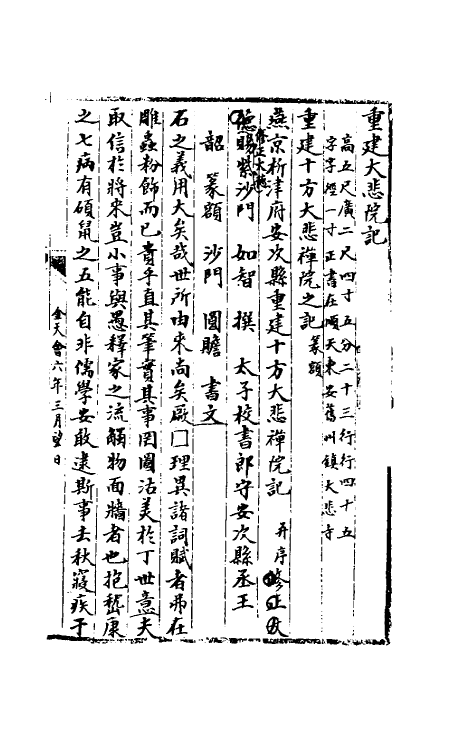 重建大悲院記
高五尺廣二尺四寸五分二十三行行四十五
字字徑一寸正書在順天東安舊州鎮大悲寺
重建十方大悲禪院之記篆額
燕京析津府安次縣重建十方大悲禪院記 并序
德賜紫沙門 如智 撰 太子校書郎守安次縣丞王
韶 篆額 沙門 圓贍 書文
石之義用大矣哉世所由來尚矣厥囗理異諸詞賦者弗在
雕蟲粉飾而已貴乎直其筆實其事罔圖沽美於丁世意夫
取信於將來豈小事與愚釋家之流觸物面牆者也抱嵇康
之七病有碩鼠之五能自非儒學安敢逮斯事去秋寢疾于
金天會六年三月望日